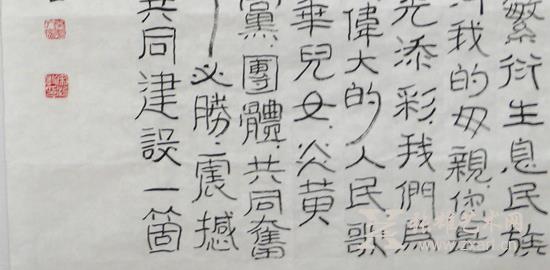 繁衍生息民族
我的母親你是
光添彩我們爲
偉大的人民歌
華兒女炎黄
黨團體共同奮
必勝震撼
共同建設一箇
艺术网